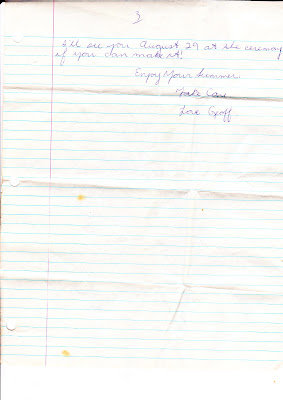 3
I'll see you August 29 at the ceremony
if you can make it!
Enjoy Your Summer
Take Care
Love Geoff